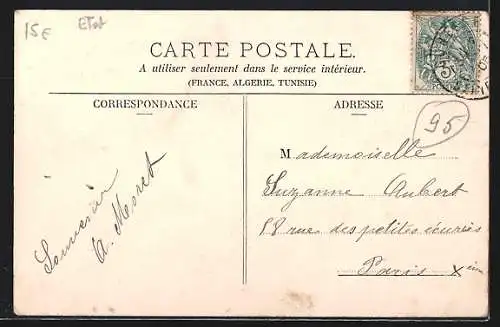 15€ Etat
CARTE POSTALE.
A utiliser seulement dans le service intérieur.
(FRANCE, ALGERIE, TUNISIE)
CORRESPONDANCE
Souvenir
A. Mesret
ADRESSE
95
Mademoiselle
Suzanne Aubert
18 rue des petites écuries
Paris Xième